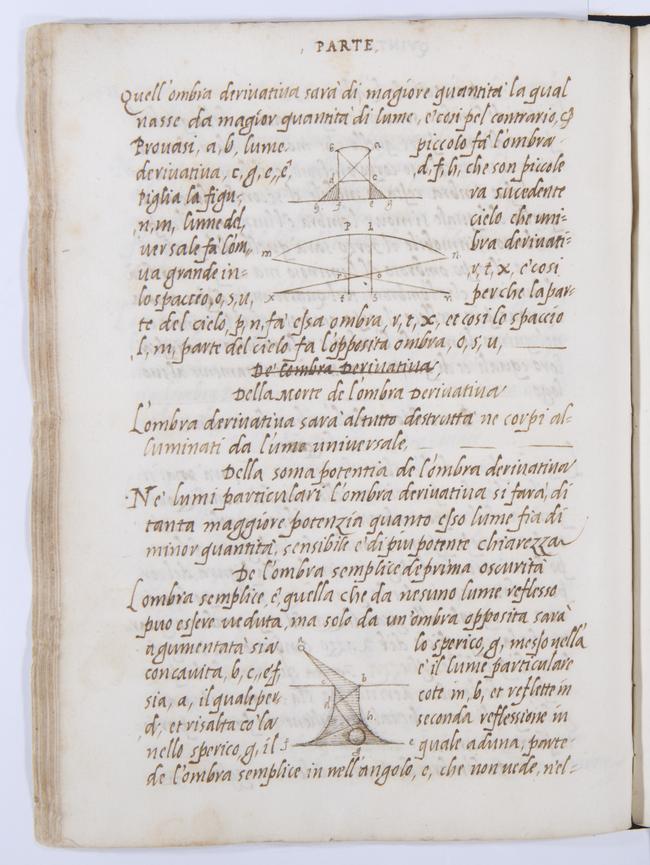 PARTE.
Quell'ombra derivativa sarà di magiore quantità la qual
nasse da magior quantità di lume, e cosi pel contrario,
Provasi, a, b, lume piccolo fa l'ombra
derivativa, c, g, e, e, d, f, h, che son piccole
Piglia la figu- ra sucedente
n, m, lume del cielo che uni-
versale fa l'om- bra derivati-
va grande in- r, t, x, e cosi
lo spaccio, o, s, u, perche la par-
te del cielo, p, n, fa essa ombra, r, t, x, et cosi lo spaccio
l, m, parte del cielo fa l'opposita ombra, o, s, u,
De l'ombra Derivativa
Della Morte de l'ombra Derivativa
L'ombra derivativa sarà al tutto destrutta ne corpi al-
luminati da l'ume universale,
Della soma potentia de l'ombra derivativa
Ne' lumi particulari l'ombra derivativa si farà, di
tanta maggiore potenzia quanto esso lume fia di
minor quantità, sensibile e di piu potente chiarezza
De l'ombra semplice de prima oscurità
L'ombra semplice, è, quella che da nesuno lume reflesso
puo essere veduta, ma solo da un'ombra opposita sarà
agumentata sia lo sperico, g, messo nella
concavita, b, c, e, f e il lume particulare
sia, a, il quale per- cote in, b, et reflette in
d, et risalta co la seconda reflessione in
nello sperico, g, il quale aduna, parte
de l'ombra semplice in nell'angolo, e, che non vede, n'el-
b a
d c
g f e h
p l
m n
r o
x t s v
a
c b
d
h
f g e